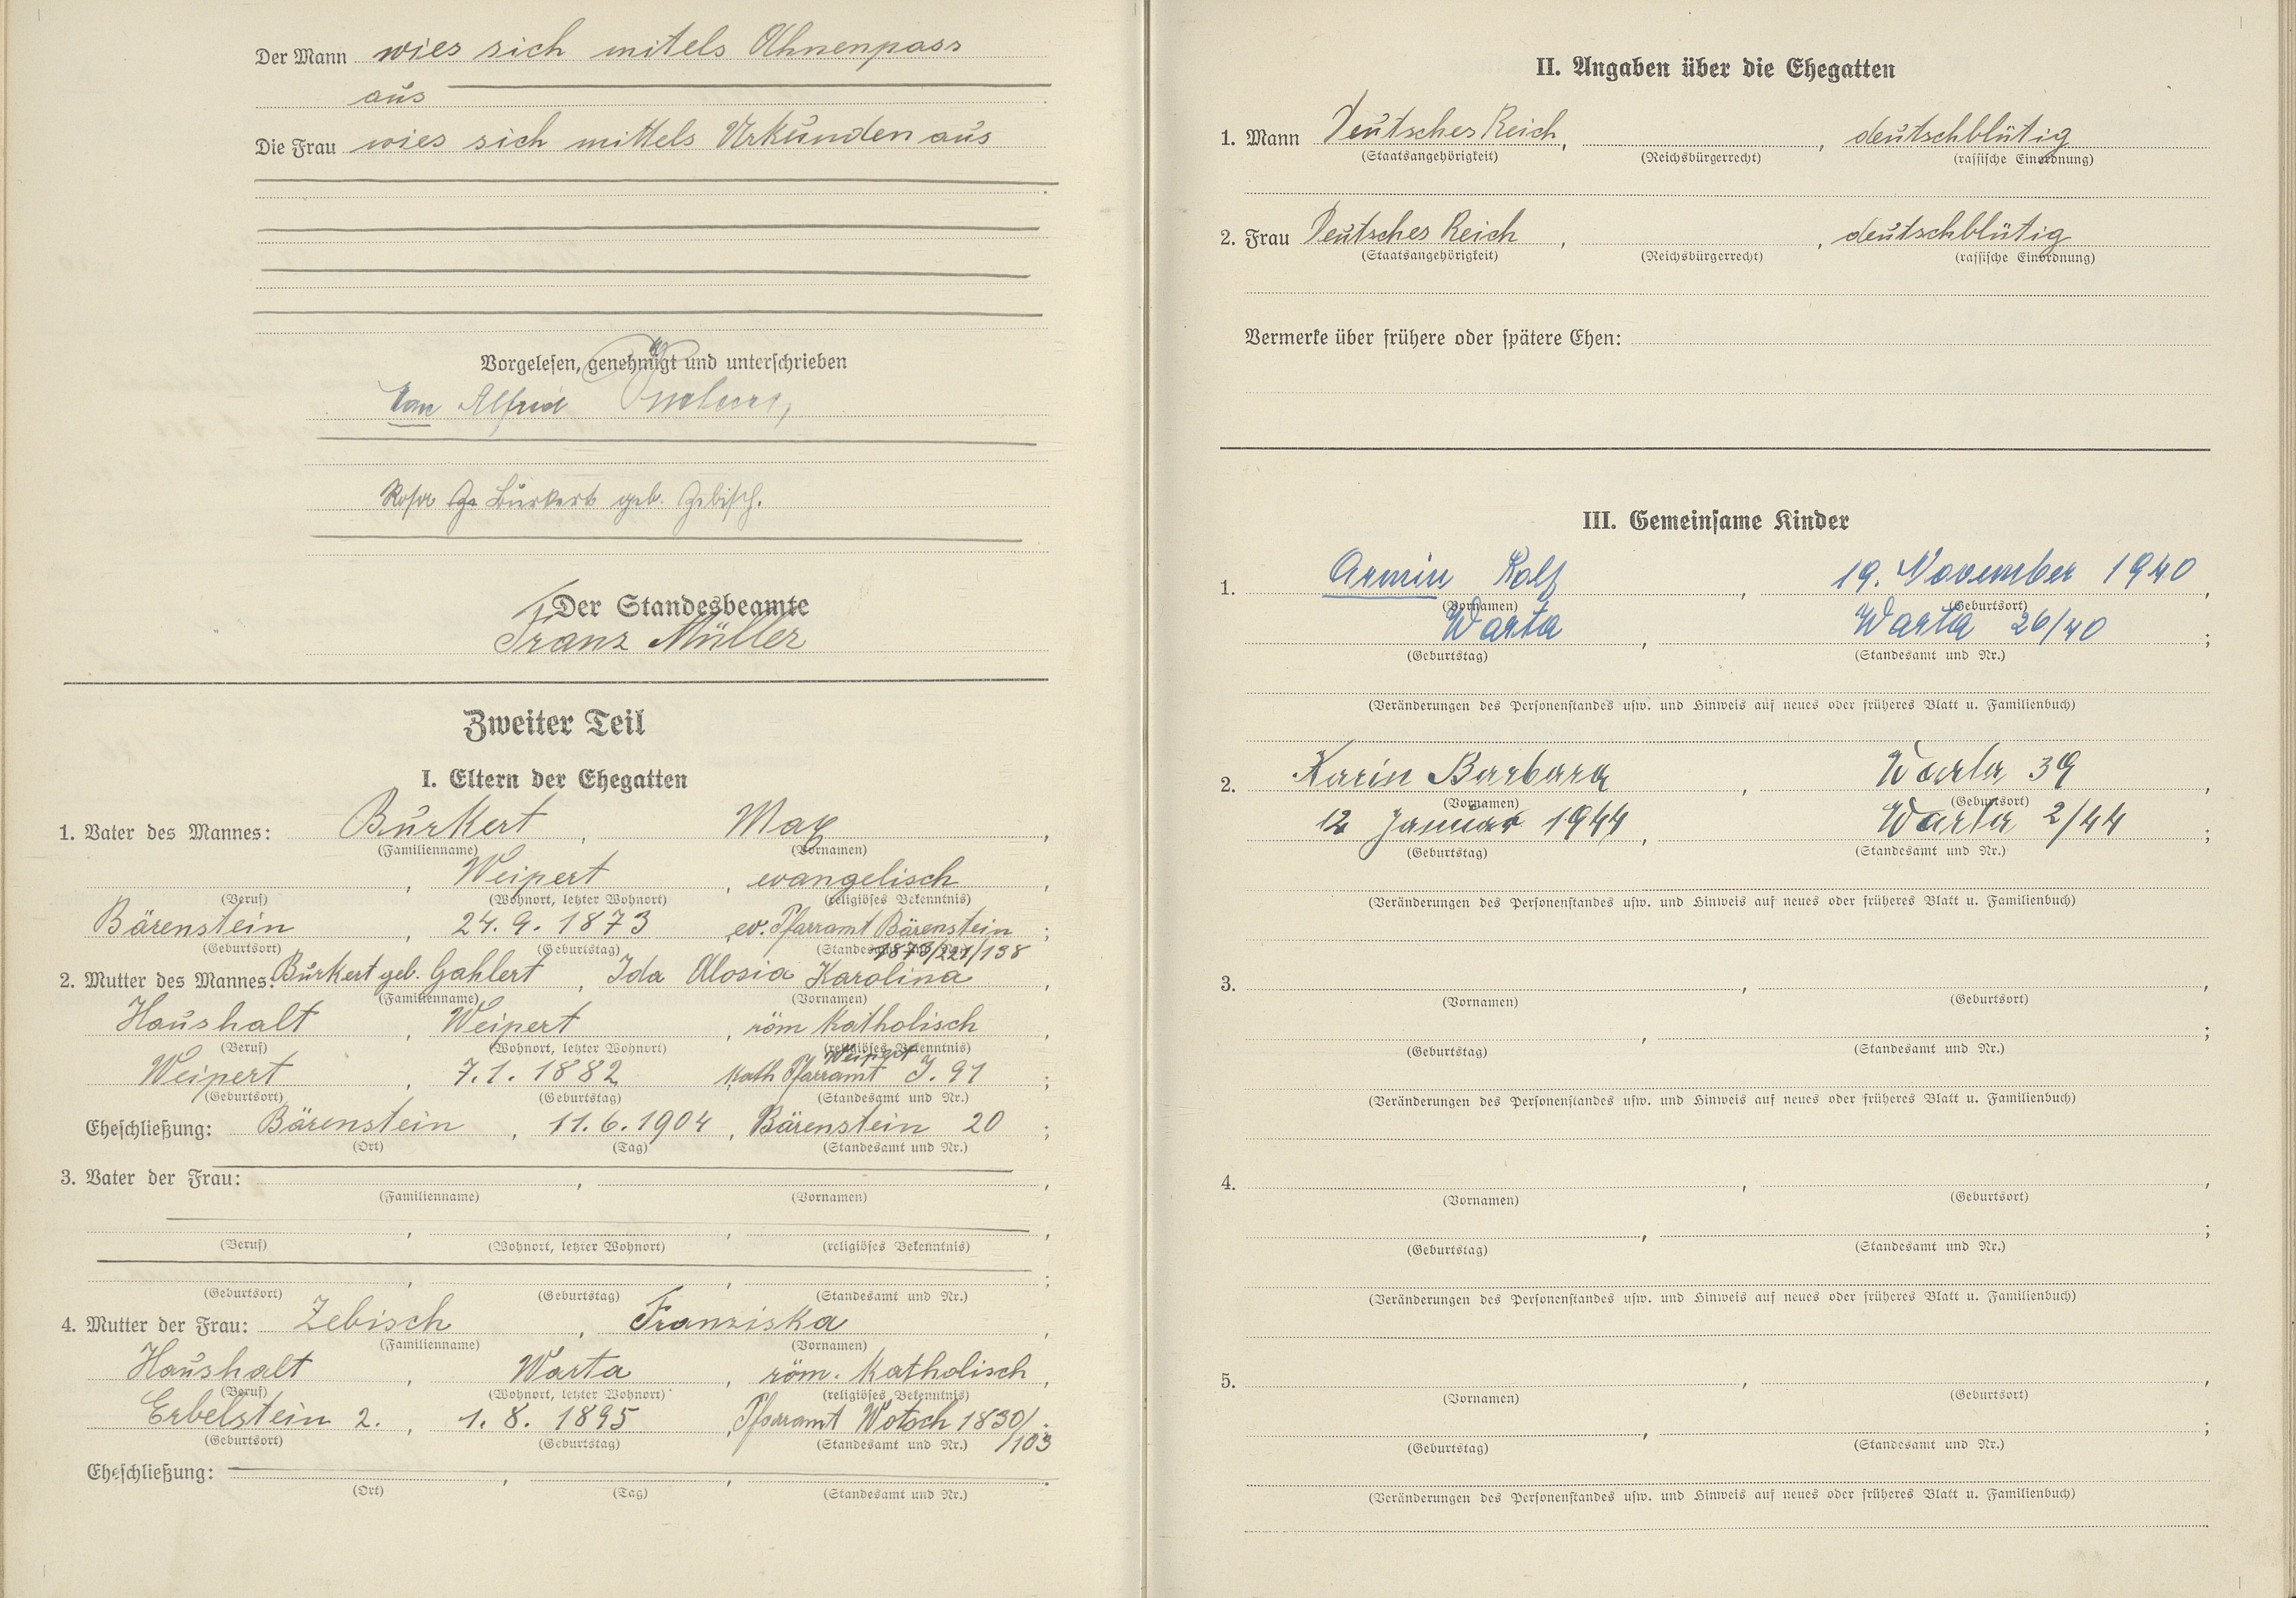 Der Mann wies sich mitels Ahnenpass
aus
Die Frau wies sich mittels Urkunden aus
Vorgelesen, genehmigt und unterschrieben
Alfred
Rosa Burkert geb. Zebisch.
Der Standesbeamte
Franz Müller
Zweiter Teil
I. Eltern der Ehegatten
1. Vater des Mannes: Burkert, Max,
(Familienname) (Vornamen)
, Weipert, evangelisch,
(Beruf) (Wohnort, letzter Wohnort) (religiöses Bekenntnis)
Bärenstein, 24. 9. 1873, ev. Pfarramt Bärenstein;
(Geburtsort) (Geburtstag) (Standesamt und Nr.) 1873/221/138
2. Mutter des Mannes: Burkert geb. Gahlert, Ida Alosia Karolina,
(Familienname) (Vornamen)
Haushalt, Weipert, röm katholisch,
(Beruf) (Wohnort, letzter Wohnort) (religiöses Bekenntnis)
Weipert
Weipert, 7. 1. 1882, kath Pfarramt J. 91;
(Geburtsort) (Geburtstag) (Standesamt und Nr.)
Eheschließung: Bärenstein, 11. 6. 1904, Bärenstein 20;
(Ort) (Tag) (Standesamt und Nr.)
3. Vater der Frau: , ,
(Familienname) (Vornamen)
, , ,
(Beruf) (Wohnort, letzter Wohnort) (religiöses Bekenntnis)
, , ;
(Geburtsort) (Geburtstag) (Standesamt und Nr.)
4. Mutter der Frau: Zebisch, Franziska,
(Familienname) (Vornamen)
Haushalt, Warta, röm. katholisch,
(Beruf) (Wohnort, letzter Wohnort) (religiöses Bekenntnis)
Erbelstein 2., 1. 8. 1895, Pfarramt Wotsch 1830/;
(Geburtsort) (Geburtstag) (Standesamt und Nr.) /103
Eheschließung: , , .
(Ort) (Tag) (Standesamt und Nr.)
II. Angaben über die Ehegatten
1. Mann Deutsches Reich, , deutschblütig
(Staatsangehörigkeit) (Reichsbürgerrecht) (rassische Einordnung)
2. Frau Deutsches Reich, , deutschblütig
(Staatsangehörigkeit) (Reichsbürgerrecht) (rassische Einordnung)
Vermerke über frühere oder spätere Ehen:
III. Gemeinsame Kinder
1. Armin Rolf, 19. November 1940,
(Vornamen) (Geburtsort)
Warta, Warta 26/40;
(Geburtstag) (Standesamt und Nr.)
(Veränderungen des Personenstandes usw. und Hinweis auf neues oder früheres Blatt u. Familienbuch)
2. Karin Barbara, Warta 39,
(Vornamen) (Geburtsort)
12 Januar 1944, Warta 2/44;
(Geburtstag) (Standesamt und Nr.)
(Veränderungen des Personenstandes usw. und Hinweis auf neues oder früheres Blatt u. Familienbuch)
3. , ,
(Vornamen) (Geburtsort)
, ;
(Geburtstag) (Standesamt und Nr.)
(Veränderungen des Personenstandes usw. und Hinweis auf neues oder früheres Blatt u. Familienbuch)
4. , ,
(Vornamen) (Geburtsort)
, ;
(Geburtstag) (Standesamt und Nr.)
(Veränderungen des Personenstandes usw. und Hinweis auf neues oder früheres Blatt u. Familienbuch)
5. , ,
(Vornamen) (Geburtsort)
, ;
(Geburtstag) (Standesamt und Nr.)
(Veränderungen des Personenstandes usw. und Hinweis auf neues oder früheres Blatt u. Familienbuch)